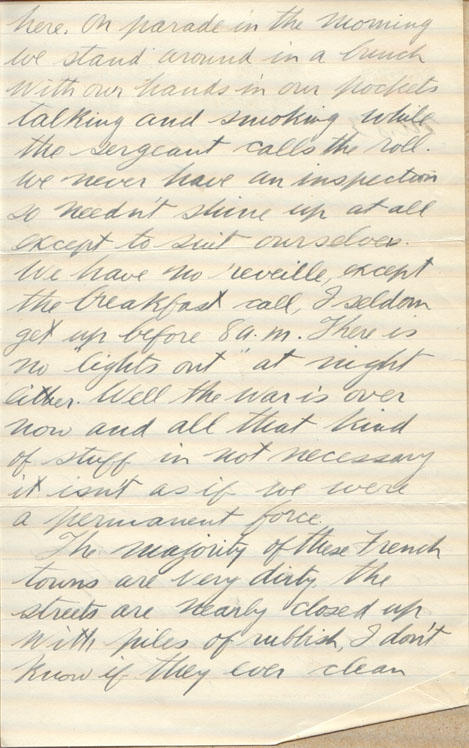 here. On parade in the morning
we stand around in a bunch
with our hands in our pockets
talking and smoking while
the sergeant calls the roll.
We never have an inspection
so needn't shine up at all
except to suit ourselves.
We have no reveille, except
the breakfast call, I seldom
get up before 8 a.m. There is
no "lights out" at night
either. Well the war is over
now and all that kind
of stuff in not necessary
it isn't as if we were
a permanent force.
The majority of these French
towns are very dirty the
streets are nearly closed up
with piles of rubbish, I don't
know if they ever clean